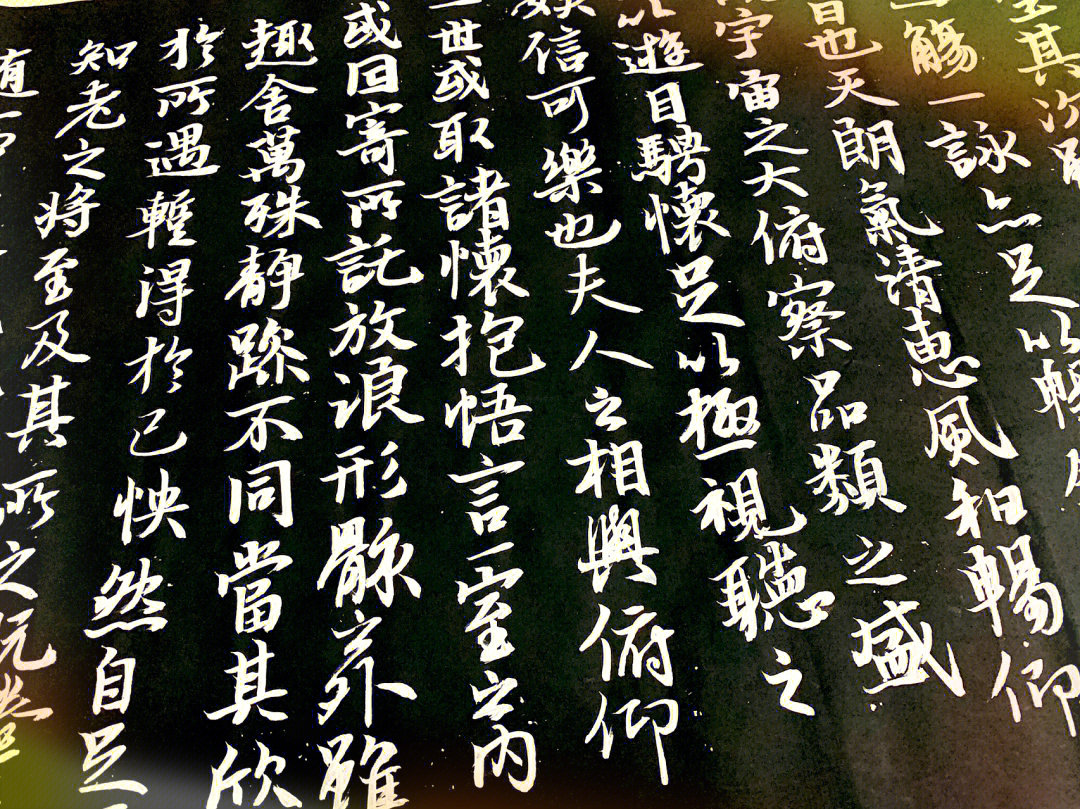 其次
觴一詠亦足以暢
日也天朗氣清恵風和暢仰
宇宙之大俯察品類之盛
以遊目騁懷足以極視聽之
娛信可樂也夫人之相與俯仰
一世或取諸懷抱悟言一室之內
或因寄所託放浪形骸之外雖
趣舍萬殊静躁不同當其欣
於所遇暫得於己怏然自足
知老之将至及其所之